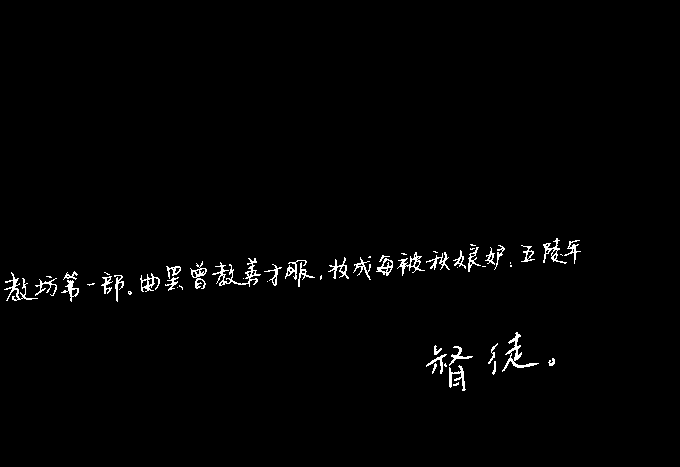 教坊第一部。曲罢曾教善才服,妆成每被秋娘妒.五陵年
督徒。